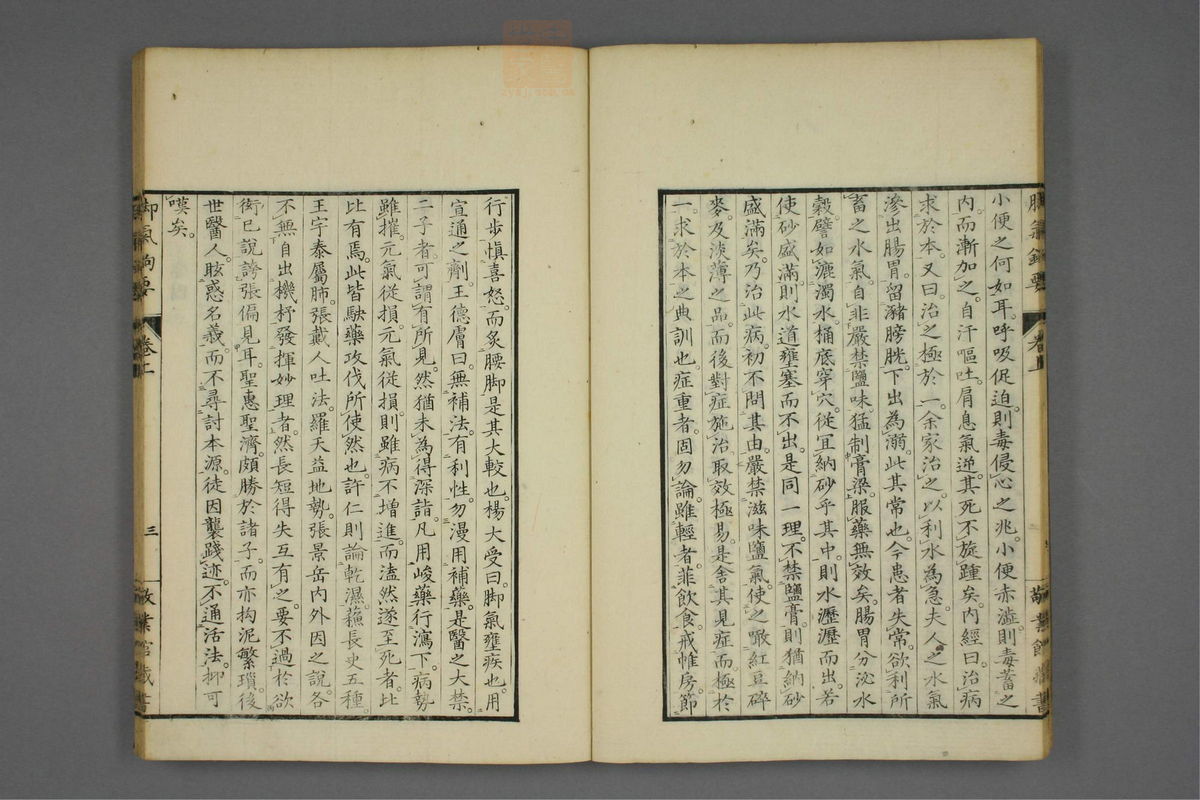 小便之何如耳。呼吸促迫則毒侵心之兆。小便赤澁則毒蓄之
內而漸加之。自汗嘔吐。肩息氣逆。其死不旋踵矣。內經曰。治病
求於本。又曰。治之極於一。余家治之。以利水為急。夫人之水氣
滲出腸胃。留瀦膀胱。下出為溺。此其常也。今患者失常。欲利所
畜之水氣。自非嚴禁鹽味。猛制膏梁。服藥無效矣。腸胃分泌水
穀。譬如漉濁水桶底穿穴。從宜納砂乎其中。則水瀝瀝而出。若
使砂盛滿。則水道壅塞而不出。是同一理。不禁鹽膏。則猶納砂
盛滿矣。乃治此病。初不問其由。嚴禁滋味鹽氣。使之噉紅豆碎
麥。及淡薄之品。而後對症施治。取效極易。是舍其見症。而極於
一。求於本之典訓也。症重者固勿論。雖輕者。菲飲食。戒帷房。節
行步。愼喜怒。而灸腰脚。是其大較也。楊大受曰。脚氣壅疾也。用
宣通之劑。王德膚曰。無補法。有利性。勿漫用補藥。是醫之大禁。
二子者。可謂有所見。然猶未為得深詣。凡用峻藥行瀉下。病勢
雖摧。元氣從損。元氣從損。則雖病不增進。而溘然遂至死者。比
比有焉。此皆駃藥攻伐所使然也。許仁則論乾濕。蘓長史五種。
王宇泰屬肺。張戴人吐法。羅天益地勢。張景岳內外因之說。各
不無自出機杼。發揮妙理者。然長短得失互有之。要不過於欲
衒已說。誇張偏見耳。聖惠聖濟。頗勝於諸子。而亦拘泥繁瑣。後
世醫人。眩惑名義。而不尋討本源。徒因襲踐迹。不通活法。抑可
嘆矣。
卷上
三